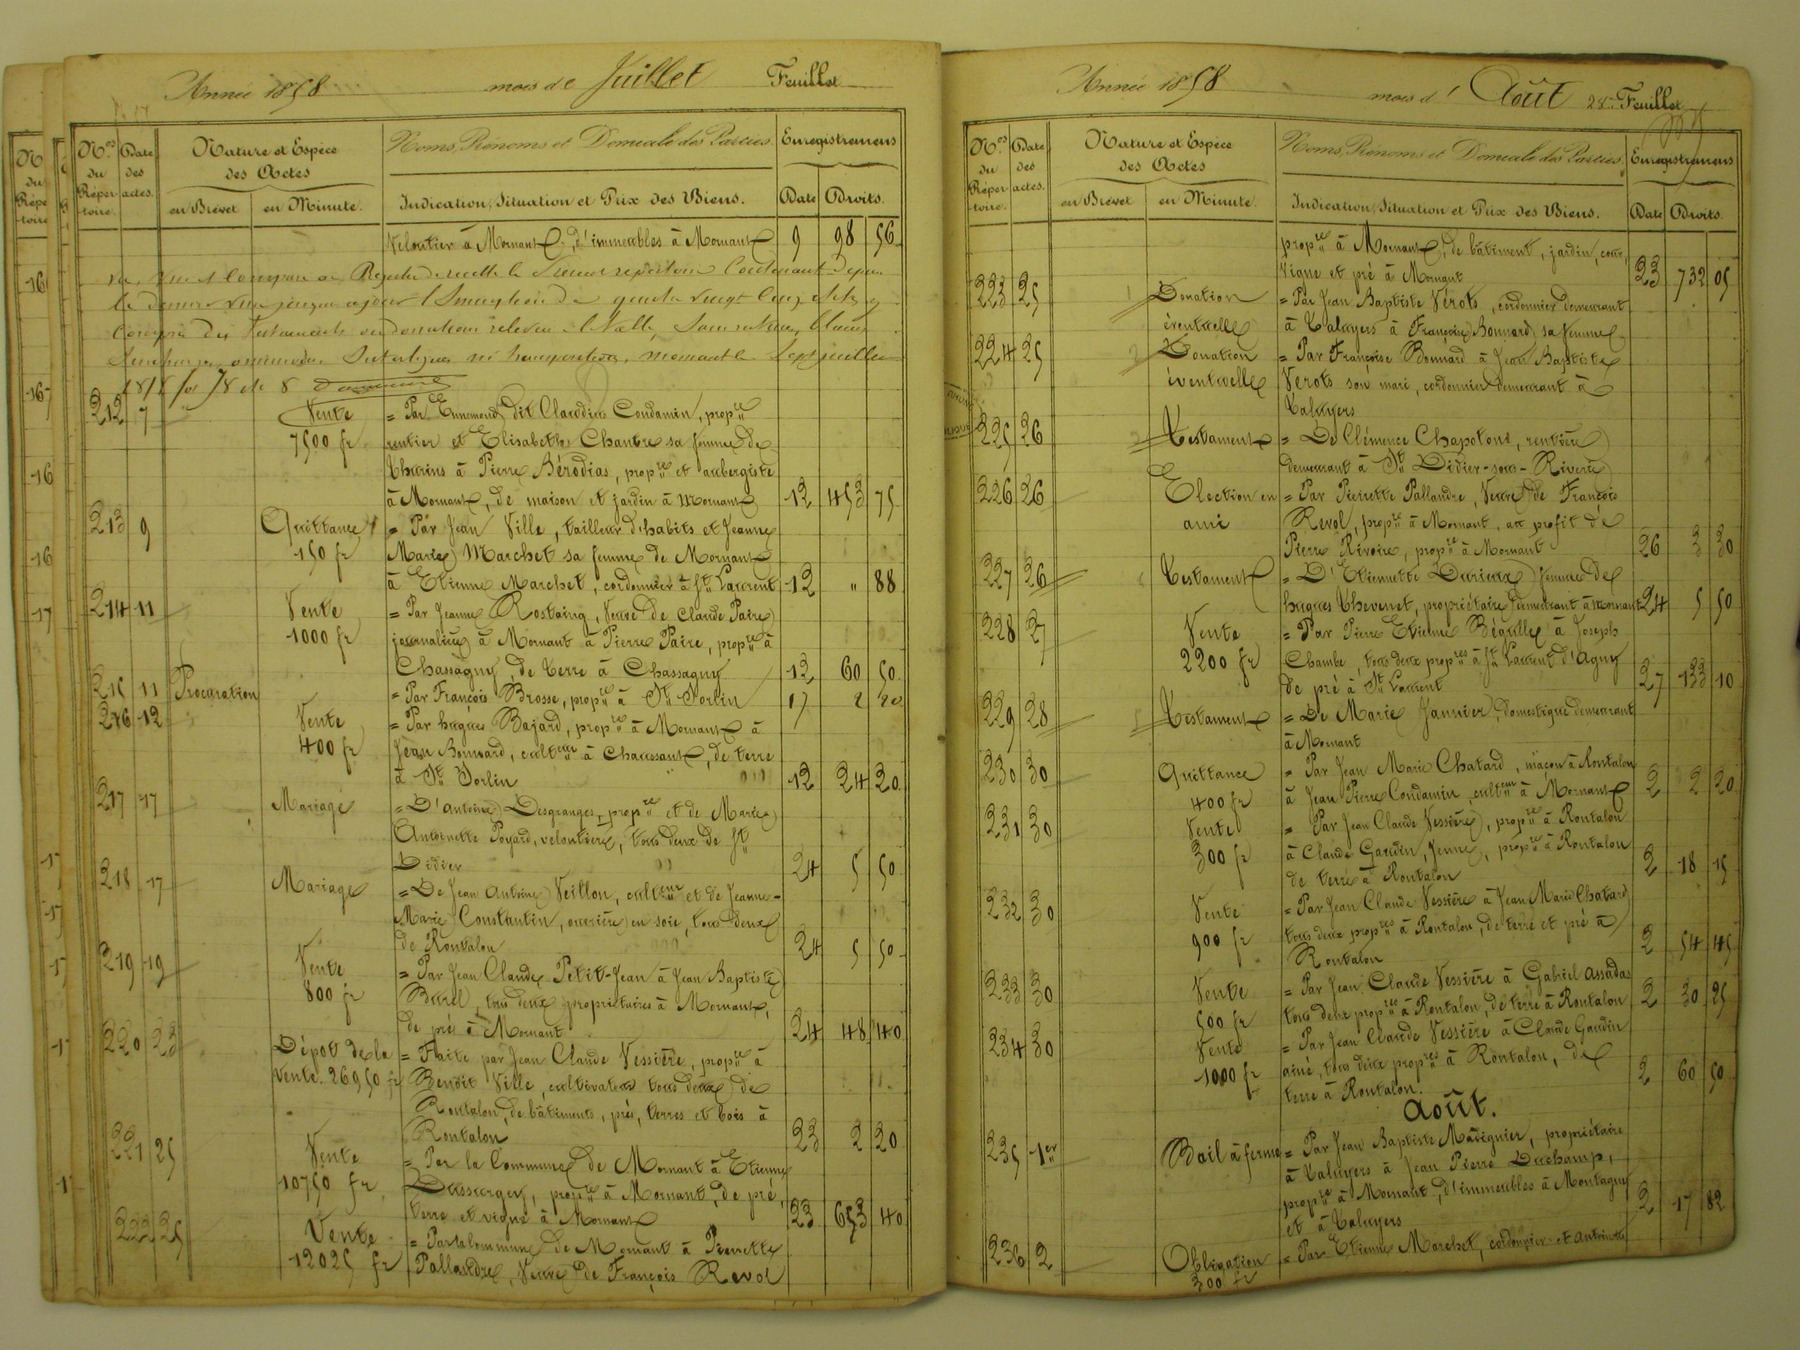 Année 1858 mois de Juillet Feuillet
Nos du Répertoire. Date des actes. Nature et Espèce des Actes Noms, Prénoms et Domicile des Parties. Enregistremens
en Brevet en Minute. Indication, Situation et Prix des Biens. Date Droits.
Veloutier à Mornant, d'immeubles à Mornant 9 98 56
212 7 Vente = Par Ennemond dit Claudius Condamin, propre
7500 fr rentier et Elisabeth Chantre sa femme de
Thurins à Pierre Bérodias, propre et aubergiste
à Mornant, de maison et jardin à Mornant 12 453 75
213 9 Quittance = Par Jean Ville, tailleur d'habits et Jeanne
150 fr Marie Marchet sa femme de Mornant
à Etienne Marchet, cordonnier à St Laurent 12 " 88
214 11 Vente = Par Jeanne Rostaing, Veuve de Claude Paire
1000 fr journalière à Mornant à Pierre Paire, propre à
Chassagny, de terre à Chassagny 12 60 50
215 11 Procuration = Par François Brosse, propre à St Sorlin 17 2 20
216 12 Vente = Par hugues Bajard, propre à Mornant à
400 fr Jean Bonnard, culteur à Chaussant, de terre
à St Sorlin 12 24 20
217 17 Mariage = D'antoine Desgranges, propre et de Marie
Antoinette Poyard, veloutière, tous deux de St
Didier 24 5 50
218 17 Mariage = De Jean Antoine Veillon, culteur et de Jeanne-
Marie Constantin, ouvrière en soie, tous deux
de Rontalon 24 5 50
219 19 Vente = Par Jean Claude Petit-Jean à Jean Baptiste
800 fr Burel, tous deux propriétaires à Mornant,
de pré à Mornant 24 48 40
220 23 Dépot de la = Faite par Jean Claude Vessière, propre à
vente 26950 fr Benoit Ville, cultivateur tous deux de
Rontalon, de bâtiments, prés, terres et bois à
Rontalon 23 2 20
221 25 Vente = Par la Commune de Mornant à Etienne
10750 fr Dussurgey, propre à Mornant, de pré,
terre et vigne à Mornant 23 653 40
222 25 Vente = Par la Commune de Mornant à Pierrette
12025 fr Pallandre, Veuve de François Revol
Année 1858 mois d' Août 28me Feuillet
Nos du Répertoire. Date des actes. Nature et Espèce des Actes Noms, Prénoms et Domicile des Parties. Enregistremens
en Brevet en Minute. Indication, Situation et Prix des Biens. Date Droits.
propre à Mornant, de bâtiment, jardin, cour,
Vigne et pré à Mornant 23 732 05
223 25 Donation = Par Jean Baptiste Vérots, cordonnier demeurant
éventuelle à Taluyers à Françoise Bonnard sa femme
224 25 Donation = Par Françoise Bonnard à Jean Baptiste
éventuelle Verots son mari, cordonnier demeurant à
Taluyers
225 26 Testament = De Clémence Chapotond, rentière
demeurant à St Didier-sous-Riverie
226 26 Election en = Par Pierrette Pallandre, Veuve de François
ami Revol, propre à Mornant, au profit de
Pierre Rivoire, propre à Mornant 26 3 30
227 26 Testament = D'Etiennette Durieux femme de
hugues Thevenet, propriétaire demeurant à Mornant 24 5 50
228 27 Vente = Par Pierre Etienne Béguille à Joseph
2200 fr Chambe, tous deux propres à St Laurent d'Agny
de pré à St Laurent 27 133 10
229 28 Testament = De Marie Janvier, domestique demeurant
à Mornant
230 30 Quittance = Par Jean Marie Chatard, maçon à Rontalon
400 fr à Jean Pierre Condamin, culteur à Mornant 2 2 20
231 30 Vente = Par Jean Claude Vessière, propre à Rontalon
300 fr à Claude Gaudin, Jeune, propre à Rontalon
de terre à Rontalon 2 18 15
232 30 Vente = Par Jean Claude Vessière à Jean Marie Chatard
900 fr tous deux propres à Rontalon, de terre et pré à
Rontalon 2 54 45
233 30 Vente = Par Jean Claude Vessière à Gabriel Assadas
500 fr tous deux propres à Rontalon, de terre à Rontalon 2 30 25
234 30 Vente = Par Jean Claude Vessière à Claude Gaudin
1000 fr ainé, tous deux propres à Rontalon, de
terre à Rontalon. 2 60 50
Août.
235 1er Bail à ferme = Par Jean Baptiste Madignier, propriétaire
à Taluyers à Jean Pierre Duchamp,
propre à Mornant, d'immeubles à Montagny
et à Taluyers 2 17 82
236 2 Obligation = Par Etienne Marchet, cordonnier et antoinette
300 fr